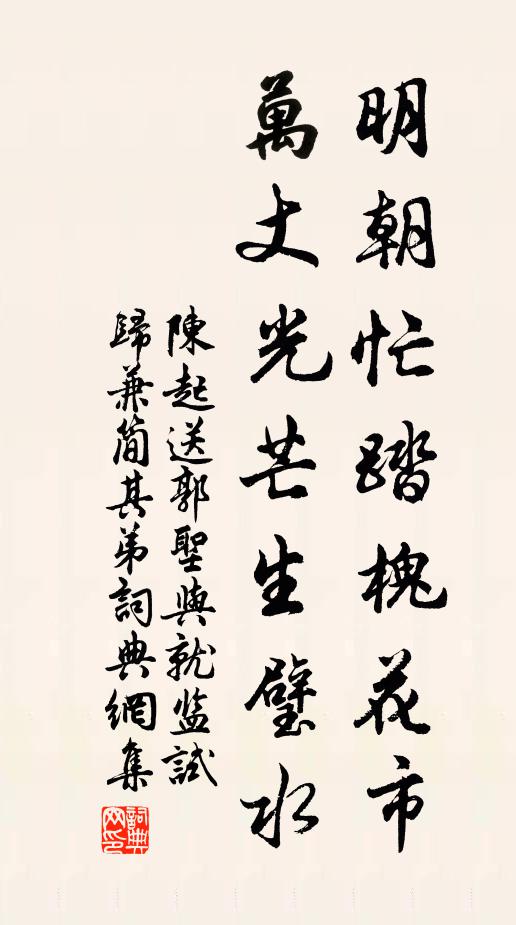 明朝忙踏槐花市
萬丈光芒生璧水
陳起送郭聖與就監試
歸兼簡其弟詞典網集
詞典網印